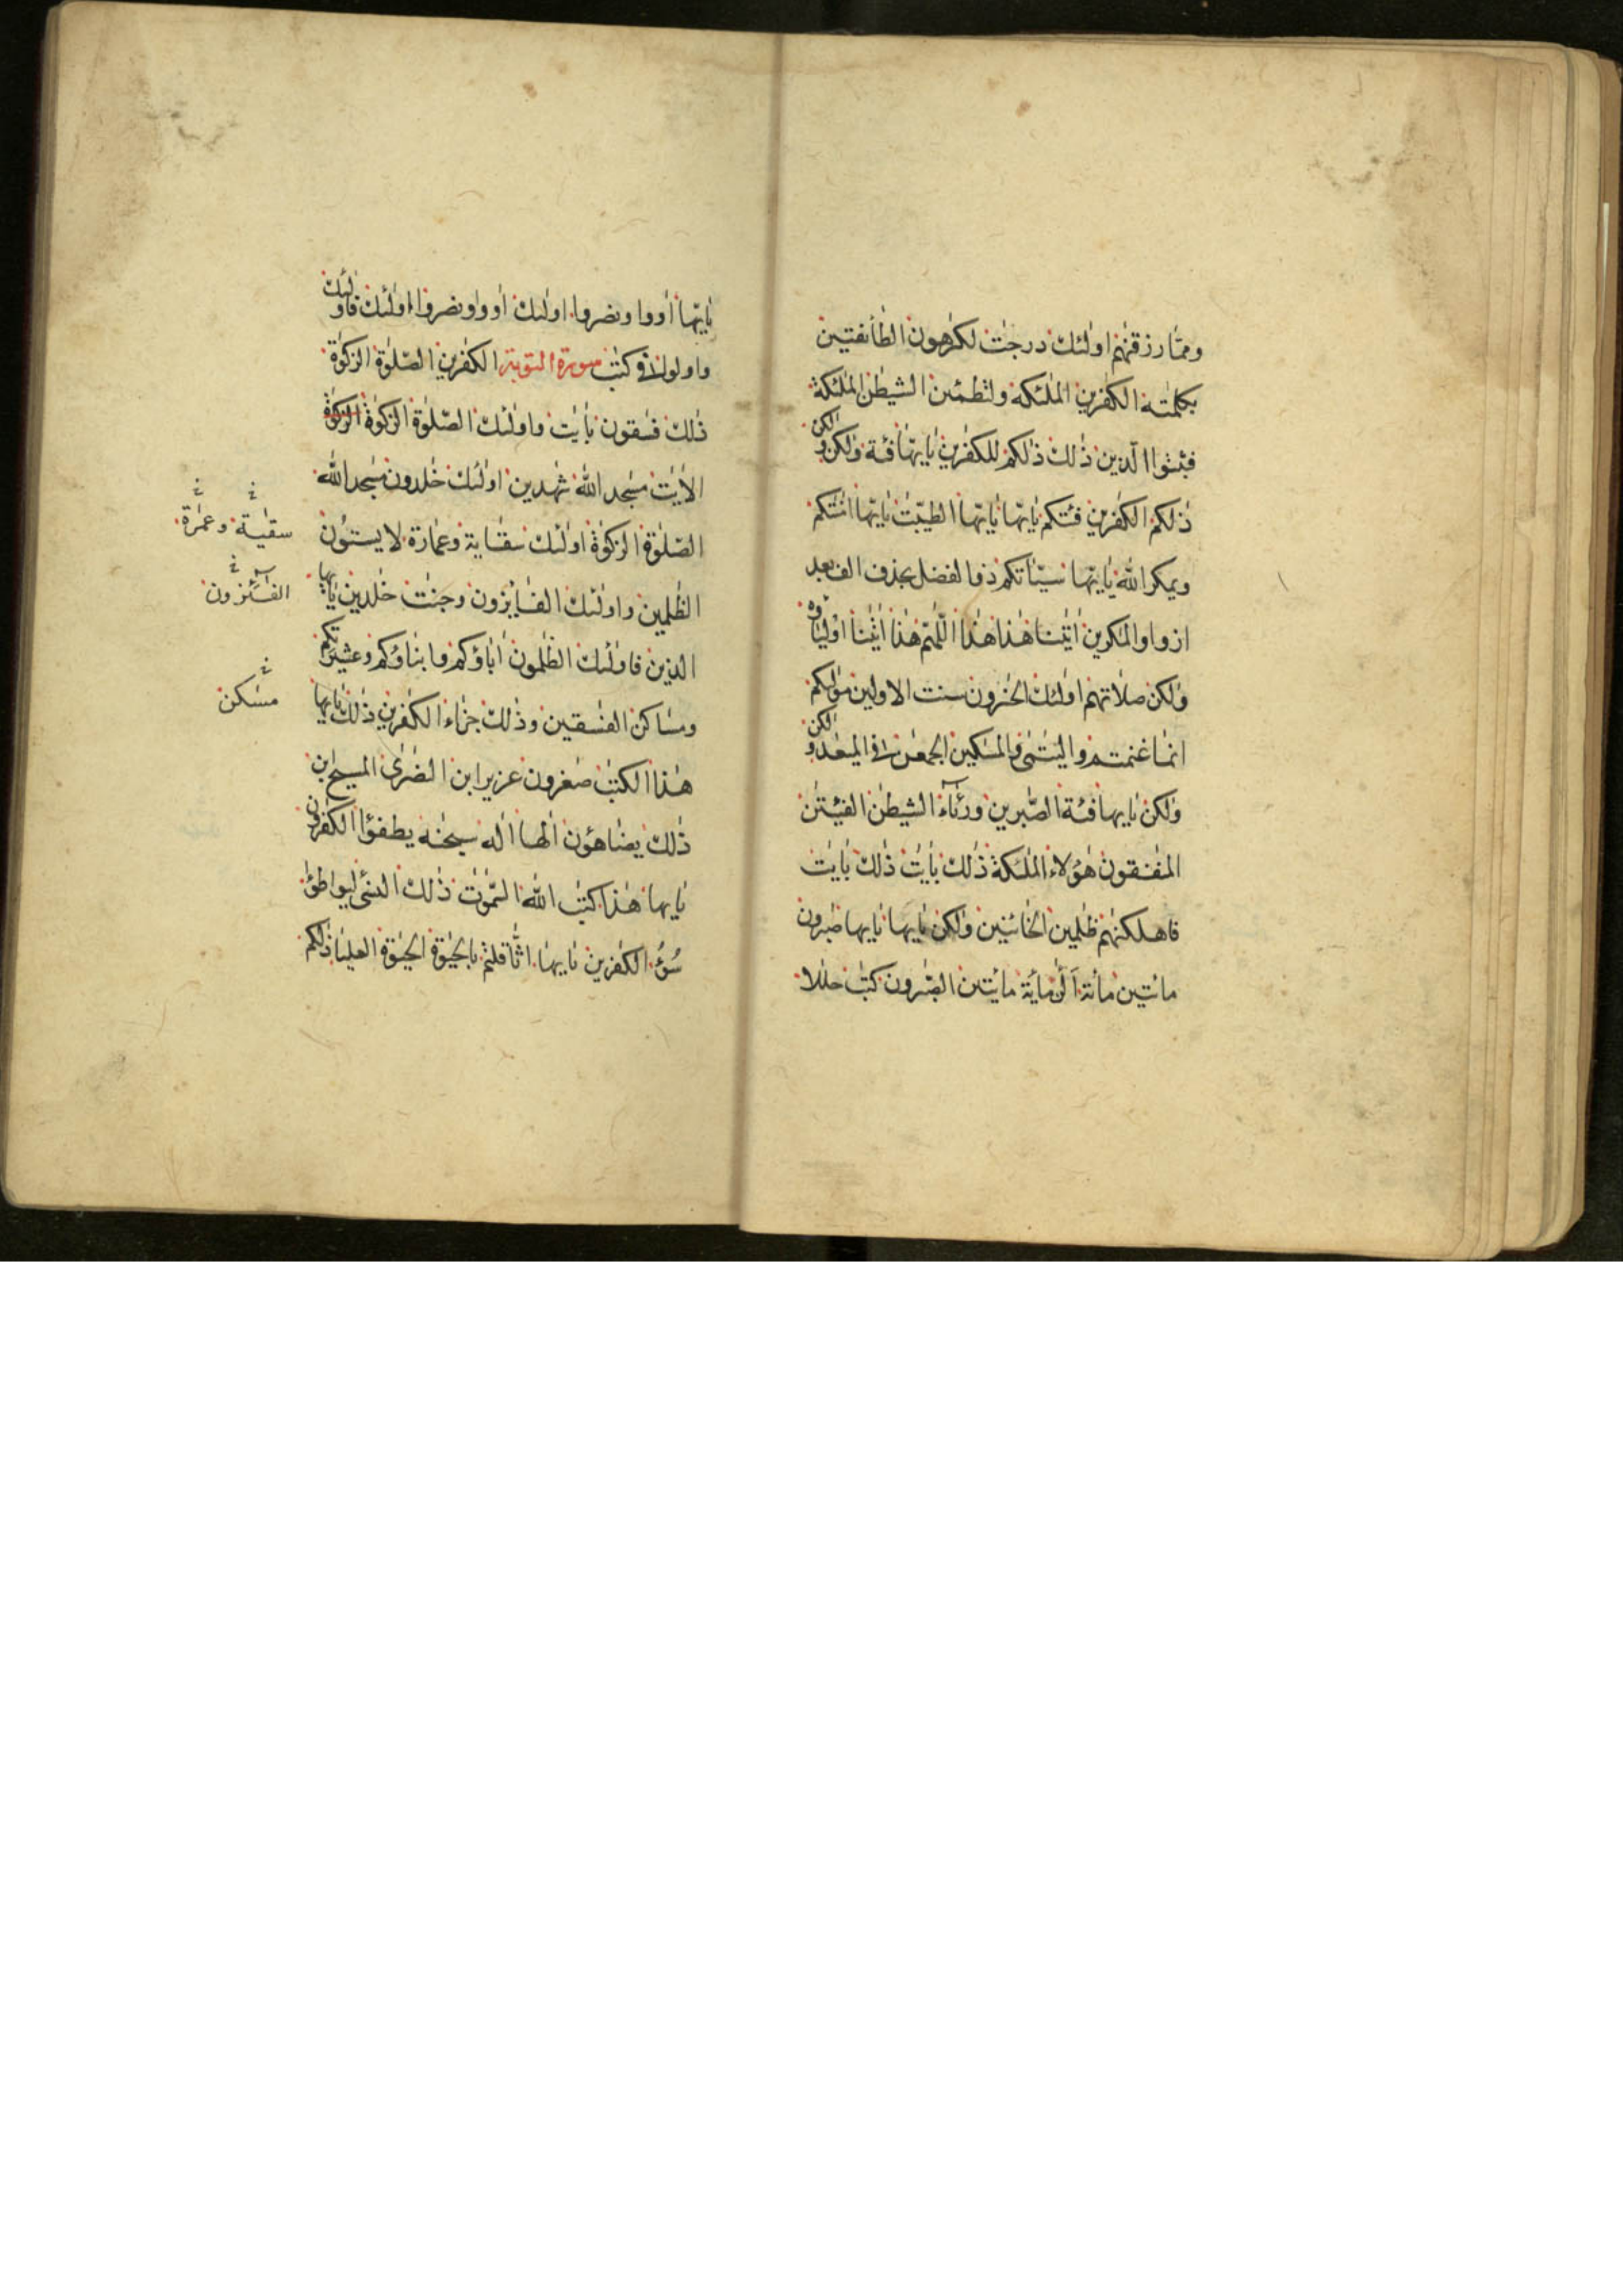 ومما رزقنهم اولئك درجت لكرهون الطائفتين
بكلمته الكفرين الملئكة ولتطمئن الشيطن الملئكة
فثبتوا الذين ذلك ذلكم للكفرين يايها فئة ولكن ولكن
ذلكم الكفرين فئتكم يايها يايها الطيبت يايها امنتكم
ويمكر الله يايها سيئاتكم ذو الفضل بحذف الف بعد
المكرين ايتنا هذا هذا اللهم هذا ائتنا اولياؤه
ولكن صلاتهم اولئك الخسرون سنت الاولين مولكم
انما غنمتم واليتمى والمسكين الجمعن الميعد ولكن
ولكن يايها فئة الصبرين ورئاء الشيطن الفئتن
المنفقون هؤلاء الملئكة ذلك بايت ذلك بايت
فاهلكنهم ظلمين الخائنين ولكن يايها يايها صبرون
مائتين مائة الن مائة مائتين الصبرون كتب حللا
يايها اووا ونصروا اولئك اووا ونصروا اولئك فاولئك
واولوا كتب سورة التوبة الكفرين الصلوة الزكوة
ذلك فسقون بايت واولئك الصلوة الزكوة الزكوة
الايت مسجد الله شهدين اولئك خلدون مسجد الله
الصلوة الزكوة اولئك سقاية وعمارة لا يستون
سقية وعمرة
الظلمين واولئك الفايزون وجنت خلدين يايها
الفائزون
الذين فاولئك الظلمون اباؤكم وابناؤكم وعشيرتكم
ومساكن الفسقين وذلك جزاء الكفرين ذلك يايها
مسكن
هذا الكتب صغرون عزير ابن النصرى المسيح ابن
ذلك يضاهؤن الها اله سبحنه يطفؤا الكفرون
يايها هذا كتب الله السموت ذلك النسئ ليواطؤا
سوء الكفرين يايها اثاقلتم بالحيوة الحيوة العليا ذلكم